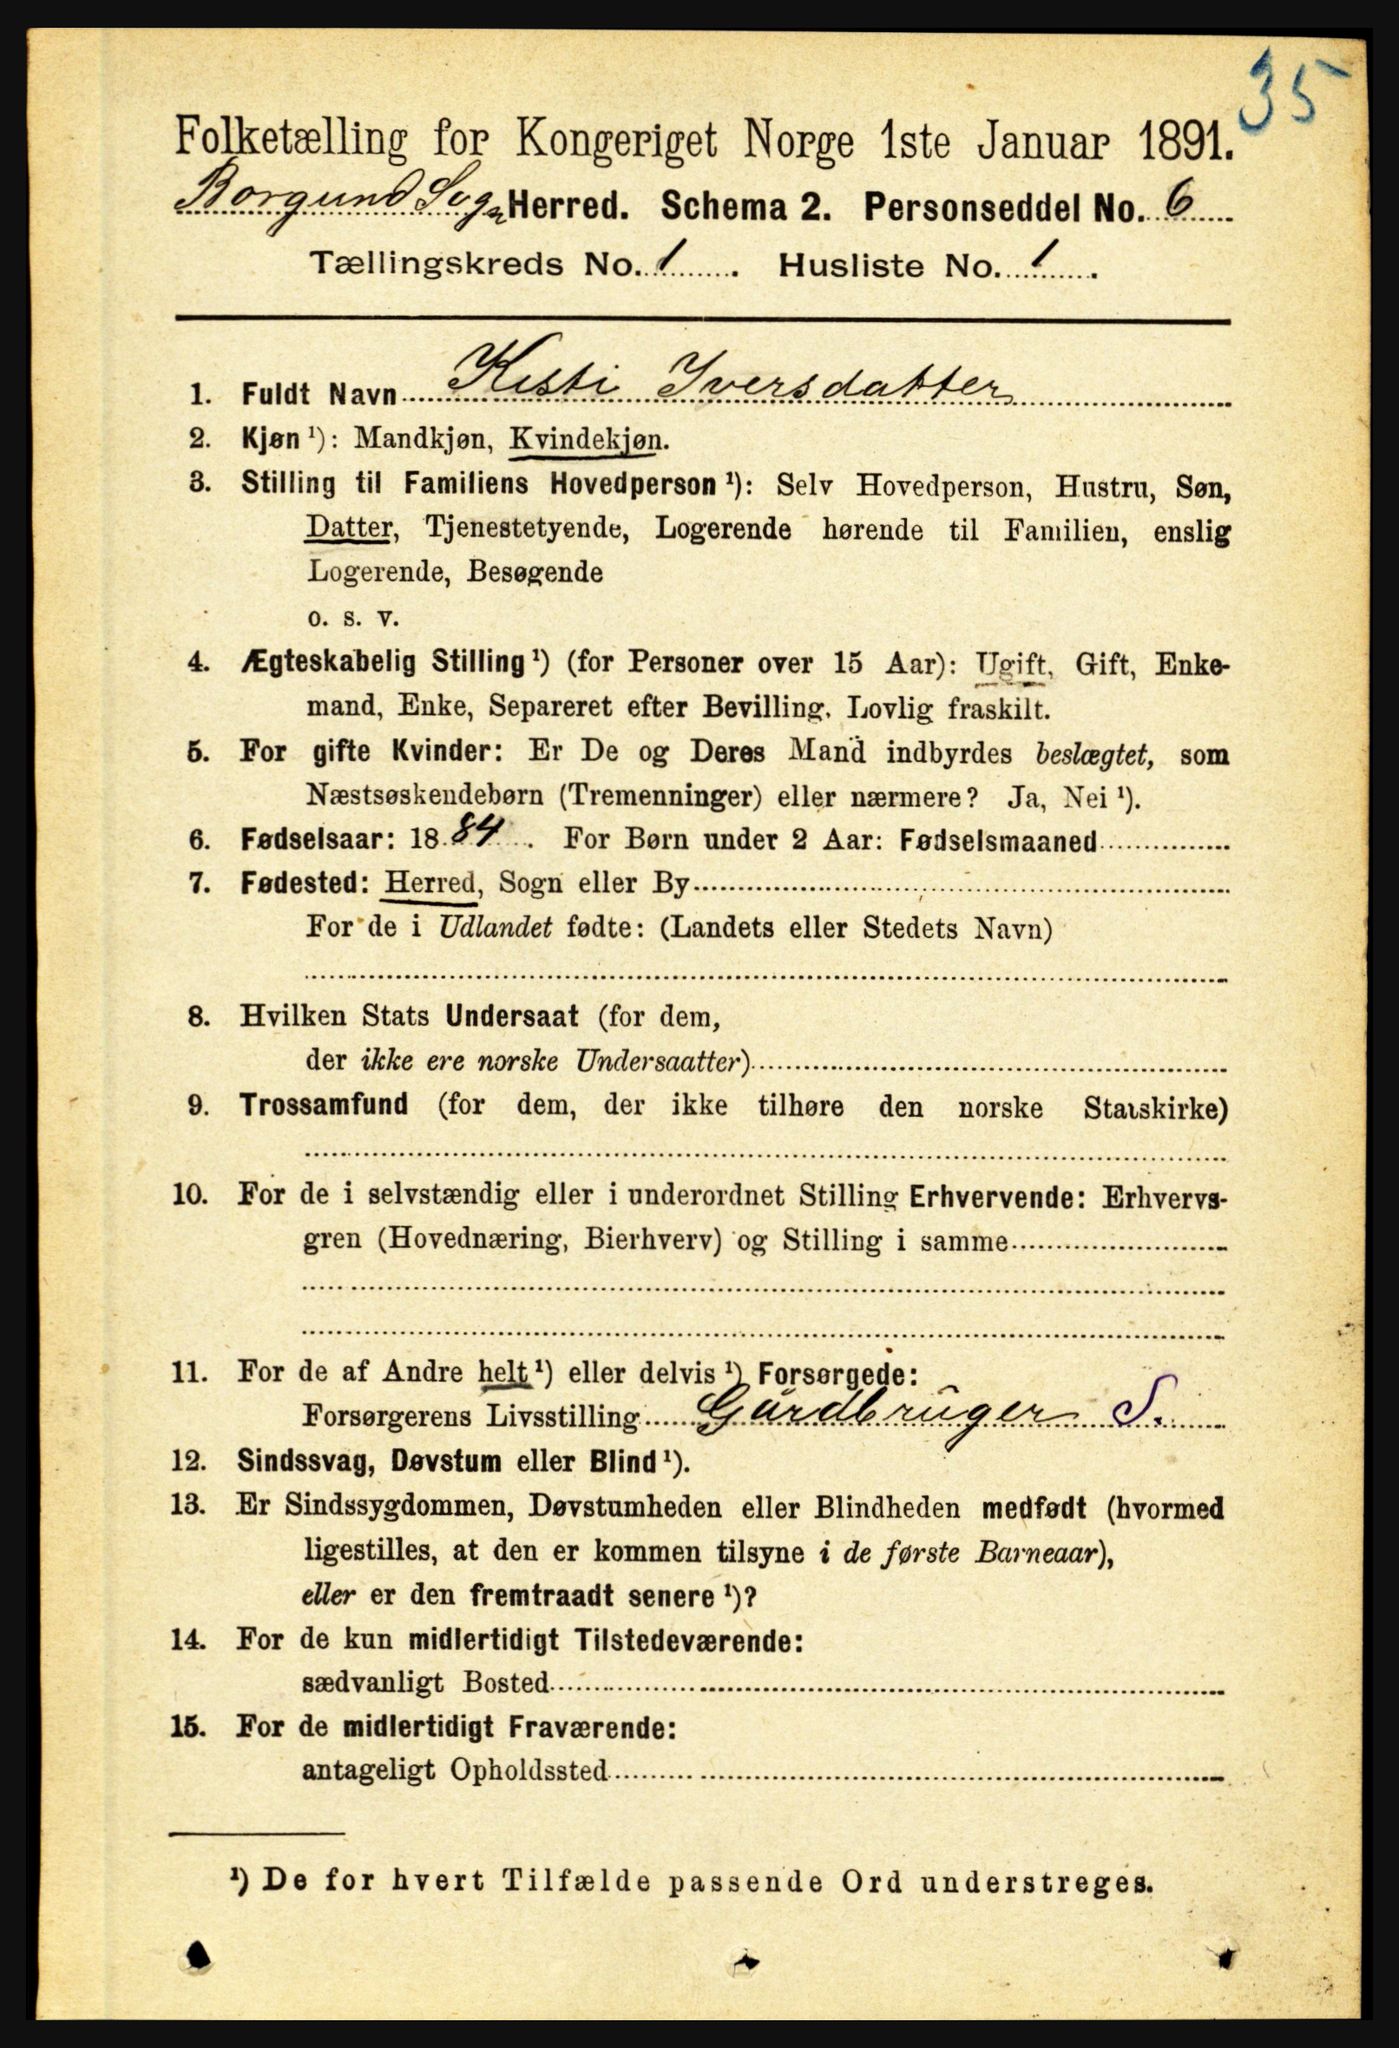 35
Folketælling for Kongeriget Norge 1ste Januar 1891.
Borgund Sogn Herred. Schema 2. Personseddel No. 6
Tællingskreds No. 1. Husliste No. 1.
1. Fuldt Navn Kisti Iversdatter
2. Kjøn ¹): Mandkjøn, Kvindekjøn.
3. Stilling til Familiens Hovedperson ¹): Selv Hovedperson, Hustru, Søn,
Datter, Tjenestetyende, Logerende hørende til Familien, enslig
Logerende, Besøgende
o. s. v.
4. Ægteskabelig Stilling ¹) (for Personer over 15 Aar): Ugift, Gift, Enke-
mand, Enke, Separeret efter Bevilling. Lovlig fraskilt.
5. For gifte Kvinder: Er De og Deres Mand indbyrdes beslægtet, som
Næstsøskendebørn (Tremenninger) eller nærmere? Ja, Nei ¹).
6. Fødselsaar: 1884. For Børn under 2 Aar: Fødselsmaaned
7. Fødested: Herred, Sogn eller By
For de i Udlandet fødte: (Landets eller Stedets Navn)
8. Hvilken Stats Undersaat (for dem,
der ikke ere norske Undersaatter)
9. Trossamfund (for dem, der ikke tilhøre den norske Statskirke)
10. For de i selvstændig eller i underordnet Stilling Erhvervende: Erhvervs-
gren (Hovednæring, Bierhverv) og Stilling i samme
11. For de af Andre helt ¹) eller delvis ¹) Forsørgede:
Forsørgerens Livsstilling Gårdbruger S.
12. Sindssvag, Døvstum eller Blind ¹).
13. Er Sindssygdommen, Døvstumheden eller Blindheden medfødt (hvormed
ligestilles, at den er kommen tilsyne i de første Barneaar),
eller er den fremtraadt senere ¹)?
14. For de kun midlertidigt Tilstedeværende:
sædvanligt Bosted
15. For de midlertidigt Fraværende:
antageligt Opholdssted
¹) De for hvert Tilfælde passende Ord understreges.